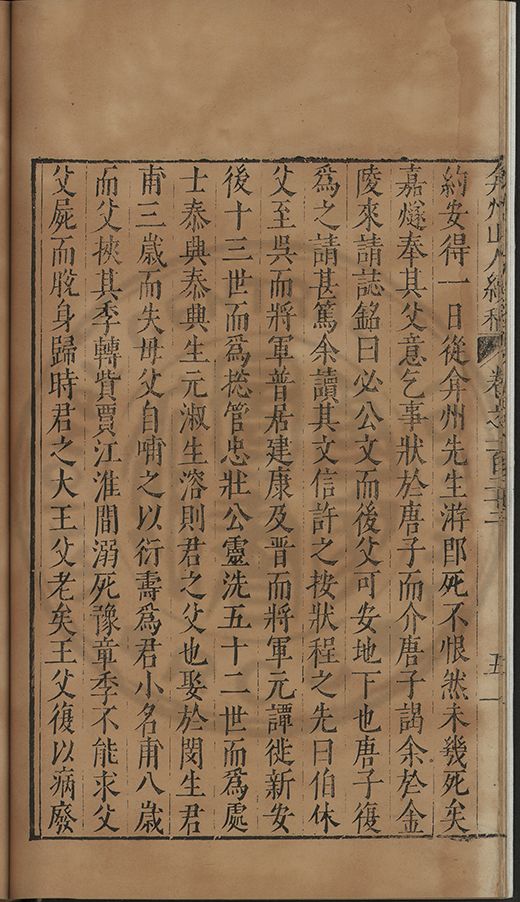 弇州山人續稿 卷之一百三十三 五
約安得一日從弇州先生游即死不恨然未幾死矣
嘉燧奉其父意乞事狀於唐子而介唐子謁余於金
陵來請誌銘曰必公文而後父可安地下也唐子復
為之請甚篤余讀其文信許之按狀程之先曰伯休
父至吳而將軍普居建康及晋而將軍元譚徙新安
後十三世而為捴管忠壯公靈洗五十二世而為處
士泰典泰典生元淑生溶則君之父也娶於閔生君
甫三歲而失母父自哺之以衍壽為君小名甫八歲
而父挾其季轉貲賈江淮間溺死豫章季不能求父
父屍而脫身歸時君之大王父老矣王父復以病廢